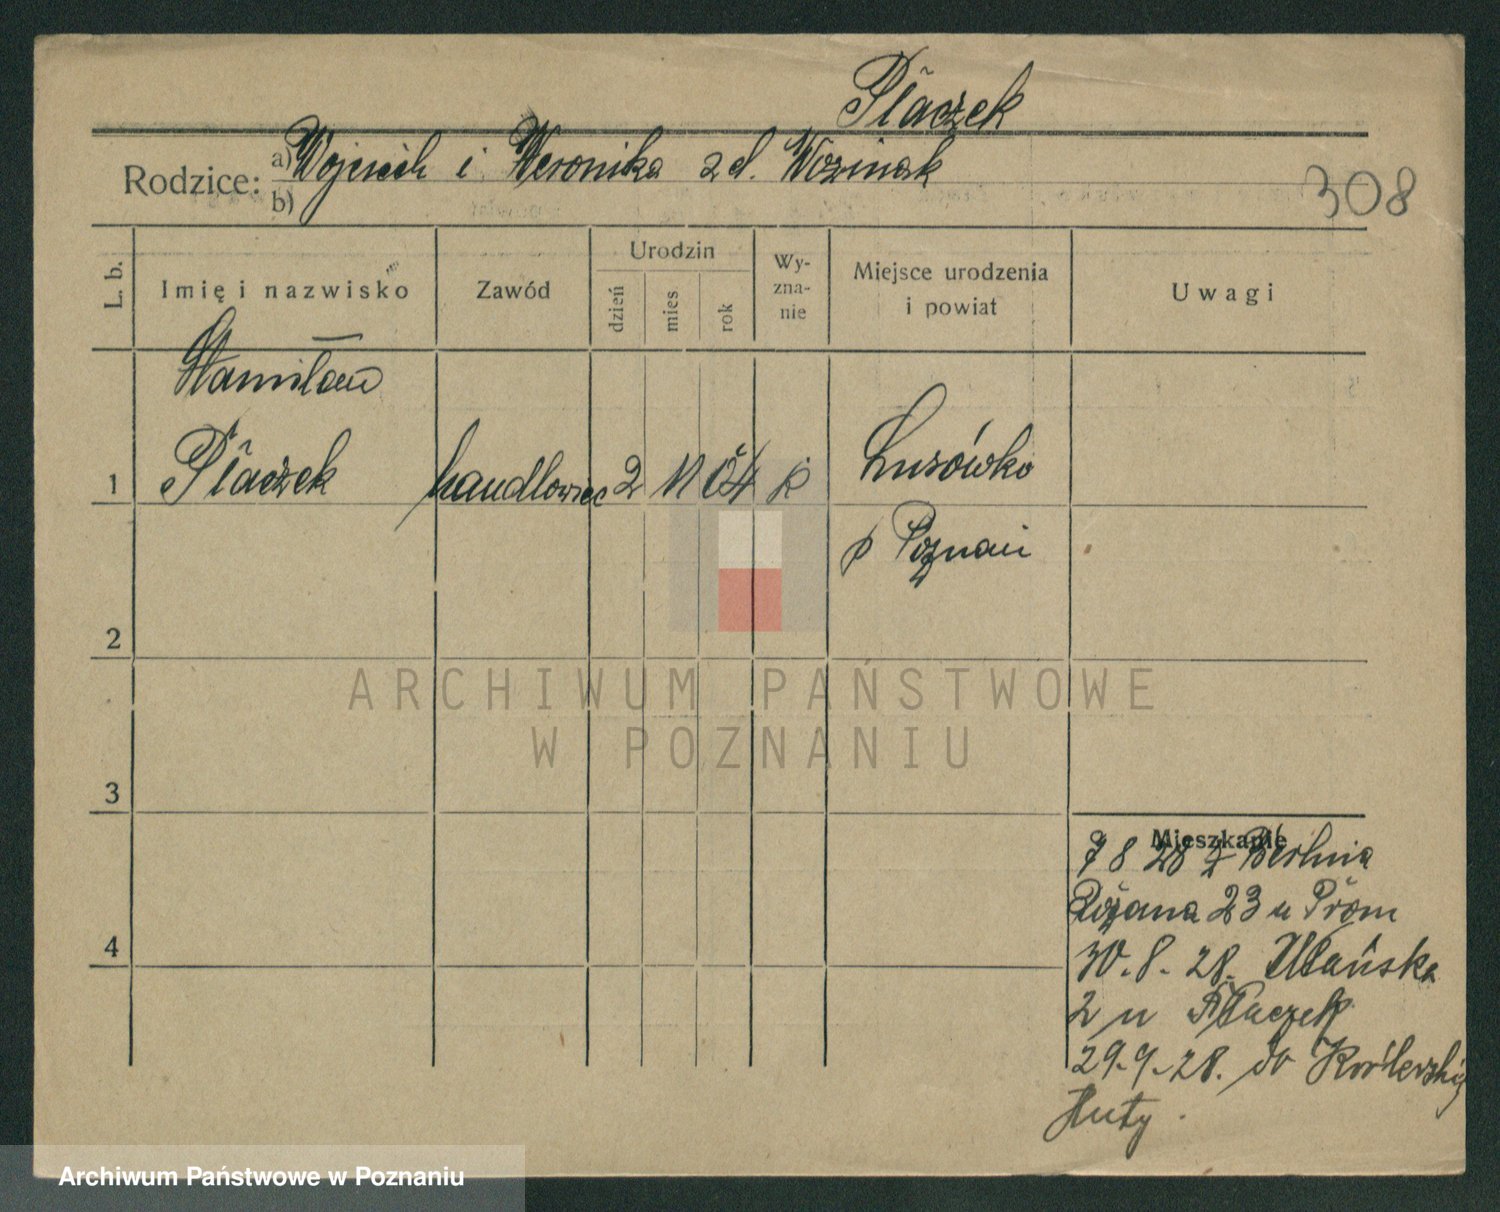 Płaczek
Rodzice: a) Wojciech i Weronika z d. Woźniak
b)
308
L. b. Imię i nazwisko Zawód Urodzin dzień mies rok Wy-zna-nie Miejsce urodzenia i powiat Uwagi
Stanisław
1 Płaczek handlowiec 2 11 04 k Lusówko
p Poznań
2
ARCHIWUM PAŃSTWOWE
W POZNANIU
3
Mieszkanie
7 8 28 z Berlina
Różana 23 u
4
30.8.28. Ułańska
2 u Płaczek
29.9.28. do Królewskiej
Huty.
Archiwum Państwowe w Poznaniu